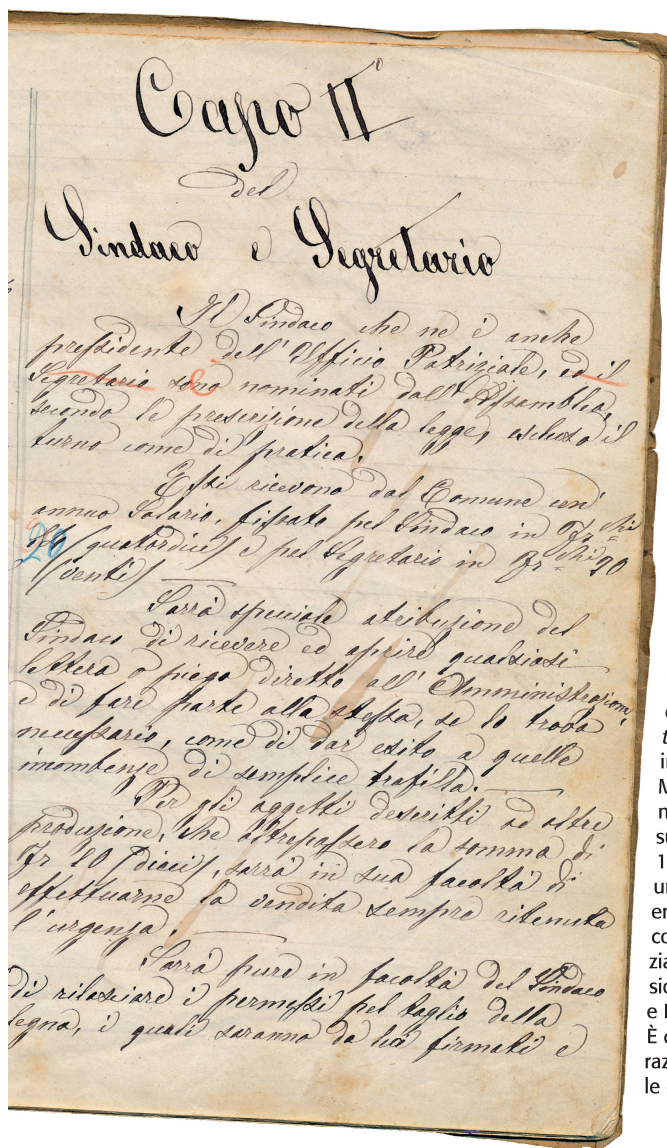 Capo II°
del
Sindaco e Segretario
Il Sindaco che ne è anche
pressidente dell'Ufficio Patriziale, ed il
Segretario sono nominati dall'Assamblea,
secondo le prescrizione della legge, escluso il
turno come di pratica.
Essi ricevono dal Comune un'
annuo Salario, fissato pel Sindaco in Fr.chi
20 (quatordici) e pel Segretario in Fr.chi 20
(venti)
Sarrà speciale atribuzione del
Sindaco di ricevere ed aprire qualsiasi
lettera o piego diretto all'Amministrazione
e di fare parte alla stessa, se lo trova
necessario, come di dar esito a quelle
incombenze di semplice trafilla.
Per gli oggetti descritti od altre
produzione, che oltrepassero la somma di
Fr 10 (dieci), sarrà in sua facoltà di
effettuarne la vendita sempre ritenuta
l'urgenza.
Sarrà pure in facoltà del Sindaco
di rilasciare i permessi pel taglio della
legna, i quali saranno da lui firmati e
in
M
n
su
1
un
en
co
zia
sio
e
È
raz
le